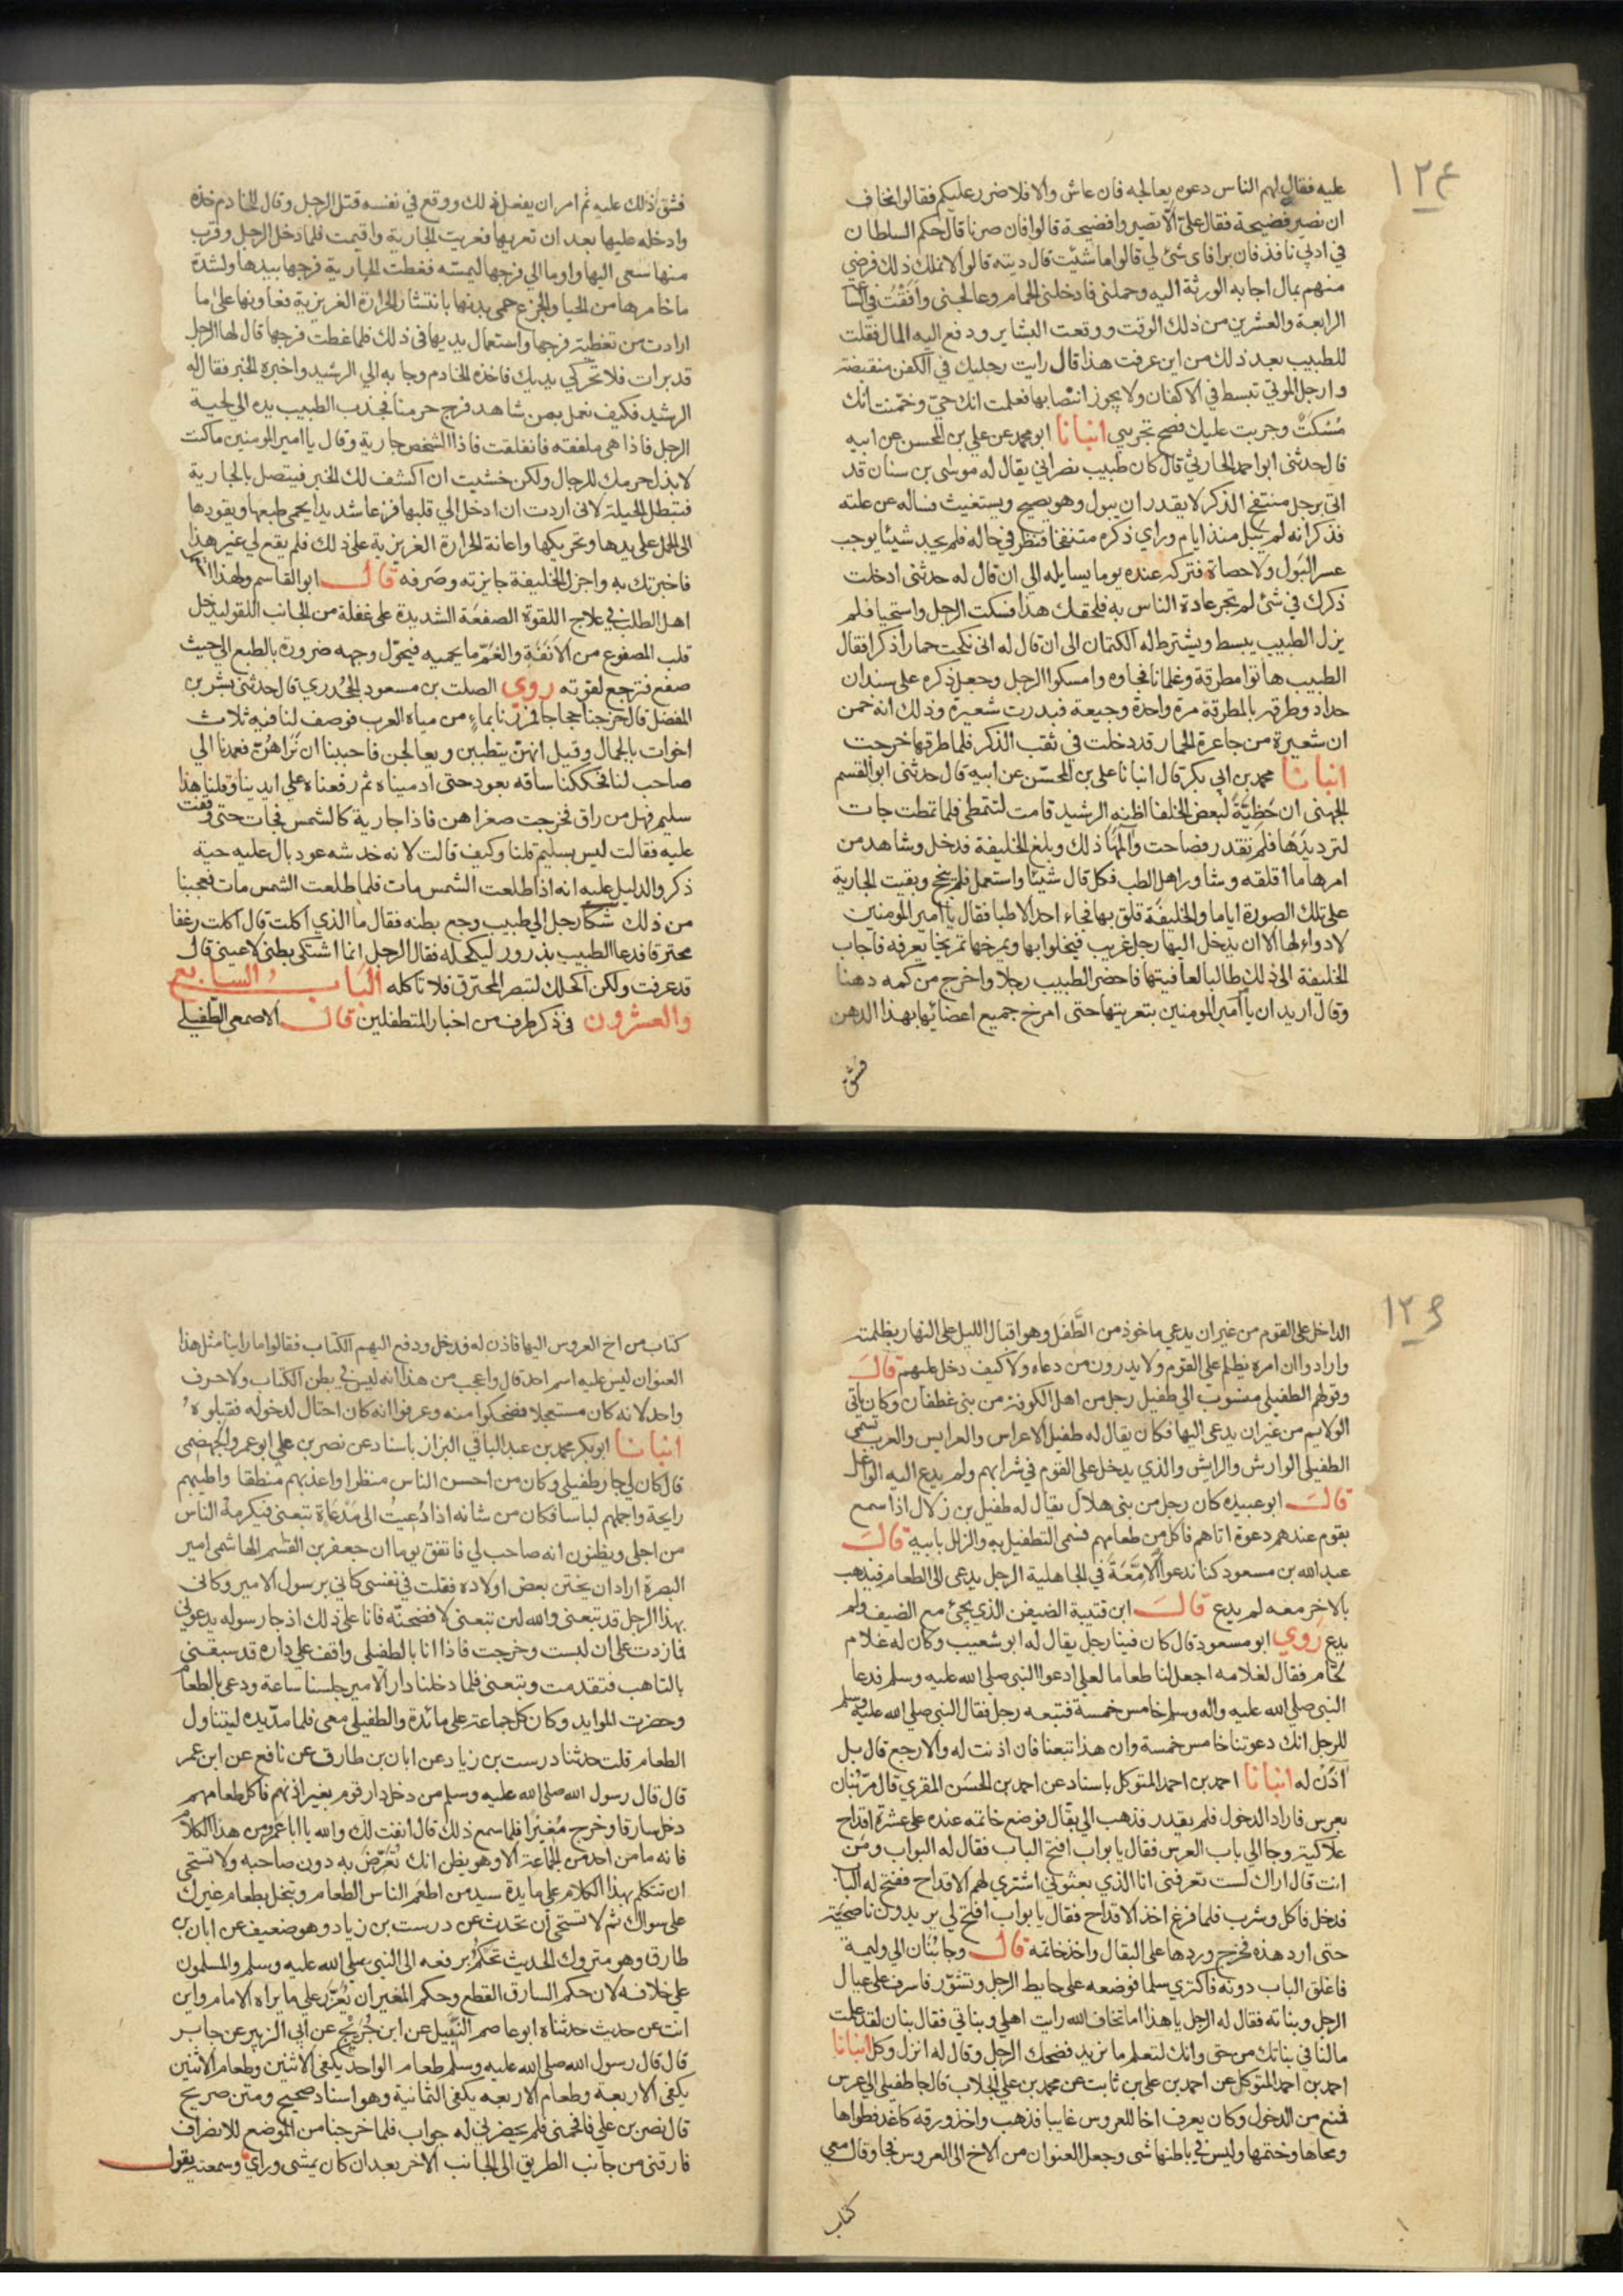 ١٢٤
عليه فقال لهم الناس دعوه يعالجه فان عاش والا فلا ضرر عليكم فقالوا نخاف
ان نصير فضيحة فقال علي الا تصيروا فضيحة قالوا فان صرنا قال حكم السلطان
في ادبي نافذ فان برا فاي شئ لي قالوا ما شئت قال ديته قالوا لا نملك ذلك فرضي
منهم بمال اجابه الورثة اليه وحملني فادخلني الحمام وعالجني وافقت في الساعة
الرابعة والعشرين من ذلك الوقت ووقعت البشاير ودفع اليه المال فقلت
للطبيب بعد ذلك من اين عرفت هذا قال رايت رجليك في الكفن منقبضة
وارجل الموتي تبسط في الاكفان ولا يجوز انتصابها فعلمت انك حي وخمنت انك
مسكت وجربت عليك فصح تجربتي انبانا ابو محمد عن علي بن المحسن عن ابيه
قال حدثني ابو احمد الحارثي قال كان طبيب نصراني يقال له موسي بن سنان قد
اتي برجل منتفخ الذكر لا يقدر ان يبول وهو يصيح ويستغيث فساله عن علته
فذكر انه لم يبل منذ ايام وراي ذكره منتفخا فنظر في حاله فلم يجد شيئا يوجب
عسر البول ولا حصاة فتركه عنده يوما يسايله الي ان قال له حدثني ادخلت
ذكرك في شئ لم تجر عادة الناس به فلحقك هذا فسكت الرجل واستحيا فلم
يزل الطبيب يبسط ويشترط له الكتمان الي ان قال له اني نكحت حمارا ذكرا فقال
الطبيب هاتوا مطرقة وغلمانا فجاوه وامسكوا الرجل وجعل ذكره علي سندان
حداد وطرقه بالمطرقة مرة واحدة وجيعة فبدرت شعيرة وذلك انه خمن
ان شعيرة من جاعرة الحمار قد دخلت في ثقب الذكر فلما طرقها خرجت
انبانا محمد بن ابي بكر قال انبانا علي بن المحسن عن ابيه قال حدثني ابو القسم
الجهني ان حظية لبعض الخلفا اظنه الرشيد قامت لتتمطي فلما تمطت جات
لترد يدها فلم تقدر فصاحت وآلمها ذلك وبلغ الخليفة فدخل وشاهد من
امرها ما اقلقه وشاور اهل الطب فكل قال شيئا واستعمل فلم ينجح وبقيت الجارية
علي تلك الصورة اياما والخليفة قلق بها فجاء احد الاطبا فقال يا امير المومنين
لا دواء لها الا ان يدخل اليها رجل غريب فيخلوا بها ويمرخها تمريخا يعرفه فاجاب
الخليفة الي ذلك طالبا لعافيتها فاحضر الطبيب رجلا واخرج من كمه دهنا
وقال اريد ان يا امير المومنين بتعريتها حتي امرخ جميع اعضائها بهذا الدهن
فشق
فشق ذلك عليه ثم امر ان يفعل ذلك ووقع في نفسه قتل الرجل وقال للخادم خذه
وادخله عليها بعد ان تعريها فعريت الجارية واقيمت فلما دخل الرجل وقرب
منها سعي اليها واوما الي فرجها ليمسه فغطت الجارية فرجها بيدها ولشدة
ما خامرها من الحيا والجزع حمي بدنها بانتشار الحرارة الغريزية فعاونها علي ما
ارادت من تغطية فرجها واستعمال يديها في ذلك فلما غطت فرجها قال لها الرجل
قد برات فلا تحركي يديك فاخذه الخادم وجا به الي الرشيد واخبره الخبر فقال له
الرشيد فكيف نعمل بمن شاهد فرج حرمنا فجذب الطبيب يده الي لحية
الرجل فاذا هي ملفقه فانفلقت فاذا الشخص جارية وقال يا امير المومنين ما كنت
لابذل حرمك للرجال ولكن خشيت ان اكشف لك الخبر فيتصل بالجارية
فتبطل الحيلة لاني اردت ان ادخل الي قلبها فزعا شديدا يحمي طبعها ويقودها
الي الحمل علي يدها وتحريكها واعانة الحرارة الغريزية علي ذلك فلم يقع لي غير هذا
فاخبرتك به واجزل الخليفة جايزته وصرفه قال ابو القاسم ولهذا
اهل الطب في علاج اللقوة الصفعة الشديدة علي غفلة من الجانب اللقو ليدخل
قلب المصفوع من الانفة والغم ما يحميه فيحول وجهه ضرورة بالطبع الي حيث
صفع فترجع لقوته روي الصلت بن مسعود الجحدري قال حدثني بشر بن
المفضل قال خرجنا حجاجا فمررنا بماء من مياه العرب فوصف لنا فيه ثلاث
اخوات بالجمال وقيل انهن يتطببن ويعالجن فاحببنا ان نراهن فعمدنا الي
صاحب لنا فحككنا ساقه بعود حتي ادميناه ثم رفعناه علي ايدينا وقلنا هذا
سليم فهل من راق فخرجت صغراهن فاذا جارية كالشمس فجات حتي وقفت
عليه فقالت ليس بسليم قلنا وكيف قالت لانه خدشه عود بال عليه حية
ذكر والدليل عليه انه اذا طلعت الشمس مات فلما طلعت الشمس مات فعجبنا
من ذلك شكا رجل الي طبيب وجع بطنه فقال ما الذي اكلت قال اكلت رغيفا
محترقا فدعا الطبيب بذرور ليكحله فقال الرجل انما اشتكي بطني لا عيني قال
قد عرفت ولكن اكحلك لتبصر المحترق فلا تاكله الباب السابع
والعشرون في ذكر طرف من اخبار المتطفلين قال الاصمعي الطفيلي
١٢٥
الداخل علي القوم من غير ان يدعي ماخوذ من الطفل وهو اقبال الليل علي النهار بظلمته
وارادوا ان امره يظلم علي القوم ولا يدرون من دعاه ولا كيف دخل عليهم قال
وقولهم الطفيلي منسوب الي طفيل رجل من اهل الكوفة من بني غطفان وكان ياتي
الولايم من غير ان يدعي اليها فكان يقال له طفيل الاعراس والعرايس والعرب تسمي
الطفيلي الوارش والرايش والذي يدخل علي القوم في شرابهم ولم يدع اليه الواغل
قال ابو عبيده كان رجل من بني هلال يقال له طفيل بن زلال اذا سمع
بقوم عندهم دعوة اتاهم فاكل من طعامهم فسمي التطفيل به والزلال بابيه قال
عبد الله بن مسعود كنا ندعوا الامعة في الجاهلية الرجل يدعي الي الطعام فيذهب
بالاخر معه لم يدع قال ابن قتيبة الضيفن الذي يجئ مع الضيف ولم
يدع روي ابو مسعود قال كان فينا رجل يقال له ابو شعيب وكان له غلام
لحام فقال لغلامه اجعل لنا طعاما لعلي ادعوا النبي صلي الله عليه وسلم فدعا
النبي صلي الله عليه واله وسلم خامس خمسة فتبعه رجل فقال النبي صلي الله عليه وسلم
للرجل انك دعوتنا خامس خمسة وان هذا تبعنا فان اذنت له والا رجع قال بل
آذن له انبانا احمد بن احمد المتوكل باسناد عن احمد بن الحسن المقري قال مر بنان
بعرس فاراد الدخول فلم يقدر فذهب الي بقال فوضع خاتمه عنده علي عشرة اقداح
وجا الي باب العرس فقال يا بواب افتح الباب فقال له البواب ومن
انت قال اراك لست تعرفني انا الذي بعثوني اشتري لهم الاقداح ففتح له الباب
فدخل فاكل وشرب فلما فرغ اخذ الاقداح فقال يا بواب افتح لي يريدون ناصحية
حتي ارد هذه فخرج وردها علي البقال واخذ خاتمه قال وجا بنان الي وليمة
فاغلق الباب دونه فاكتري سلما فوضعه علي حايط الرجل وتشوّر فاسرف علي عيال
الرجل وبناته فقال له الرجل يا هذا اما تخاف الله رايت اهلي وبناتي فقال بنان لقد علمت
مالنا في بناتك من حق وانك لتعلم ما نريد فضحك الرجل وقال له انزل وكل انبانا
احمد بن احمد المتوكل عن احمد بن علي بن ثابت عن محمد بن علي الجلاب قال جا طفيلي الي عرس
فمنع من الدخول وكان يعرف اخا للعروس غايبا فذهب واخذ ورقه كاغد فطواها
ومحاها وختمها وليس في باطنها شي وجعل العنوان من الاخ الي العروس فجا وقال معي
كتاب
كتاب من اخ العروس اليها فاذن له فدخل ودفع اليهم الكتاب فقالوا ما راينا مثل هذا
العنوان ليس عليه اسم احد قال واعجب من هذا انه ليس في بطن الكتاب ولا حرف
واحد لانه كان مستعجلا فضحكوا منه وعرفوا انه كان احتال لدخوله فقبلوه
انبانا ابو بكر محمد بن عبد الباقي البزاز باسناد عن نصر بن علي ابو عمرو الجهضمي
قال كان لي جار طفيلي وكان من احسن الناس منظرا واعذبهم منطقا واطيبهم
رايحة واجملهم لباسا فكان من شانه اذا دعيت الي مدعاة تبعني فيكرمه الناس
من اجلي ويظنون انه صاحب لي فاتفق يوما ان جعفر بن القسم الهاشمي امير
البصرة اراد ان يختن بعض اولاده فقلت في نفسي كاني برسول الامير وكاني
بهذا الرجل قد تبعني والله لين تبعني لافضحنه فانا علي ذلك اذ جا رسوله يدعوني
فما زدت علي ان لبست وخرجت فاذا انا بالطفيلي واقف علي باب داره قد سبقني
بالتاهب فتقدمت وتبعني فلما دخلنا دار الامير جلسنا ساعة ودعي بالطعام
وحضرت الموايد وكان كل جماعة علي مائدة والطفيلي معي فلما مد يده ليتناول
الطعام قلت حدثنا درست بن زياد عن ابان بن طارق عن نافع عن ابن عمر
قال قال رسول الله صلي الله عليه وسلم من دخل دار قوم بغير اذنهم فاكل طعامهم
دخل سارقا وخرج مغيرا فلما سمع ذلك قال انفت لك والله يا ابا عمرو من هذا الكلام
فانه ما من احد من الجماعة الا وهو يظن انك تعرض به دون صاحبه ولا تستحي
ان تتكلم بهذا الكلام علي مايدة سيد من اطعم الناس الطعام وتبخل بطعام غيرك
علي سواك ثم لا تستحي ان تحدث عن درست بن زياد وهو ضعيف عن ابان بن
طارق وهو متروك الحديث تحكم برفعه الي النبي صلي الله عليه وسلم والمسلمون
علي خلافه لان حكم السارق القطع وحكم المغير ان يعزر علي ما يراه الامام واين
انت عن حديث حدثناه ابو عاصم النبيل عن ابن جريج عن ابي الزبير عن جابر
قال قال رسول الله صلي الله عليه وسلم طعام الواحد يكفي الاثنين وطعام الاثنين
يكفي الاربعة وطعام الاربعه يكفي الثمانية وهو اسناد صحيح ومتن صريح
قال نصر بن علي فافحمني فلم يحضرني له جواب فلما خرجنا من الموضع للانصراف
فارقني من جانب الطريق الي الجانب الاخر بعد ان كان يمشي وراي وسمعته يقول